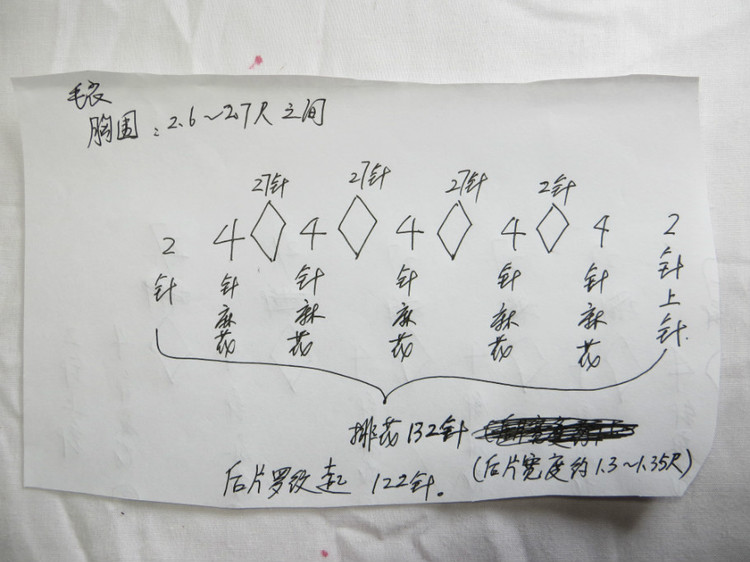 毛衣
胸围:2.6~2.7尺之间
27针 27针 27针 2针
2针
4针麻花
4针麻花
4针麻花
4针麻花
4针麻花
2针上针.
排花132针
(后片宽度约1.3~1.35尺)
后片罗纹起 122针。